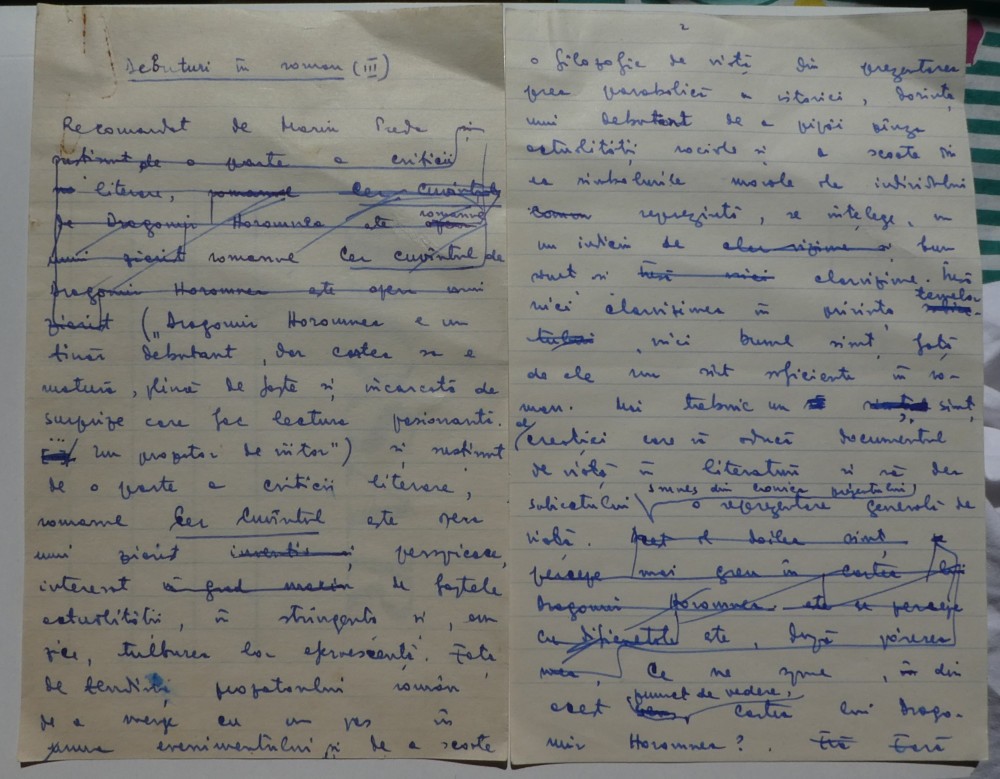 Debuturi în roman (III)
Recomandat de Marin Preda și
susținut de o parte a criticii
literare, romanul Cer cuvîntul
de Dragomir Horomnea este romanul
unui ziarist romanul Cer cuvîntul de
Dragomir Horomnea este opera unui
ziarist („Dragomir Horomnea e un
tînăr debutant, dar cartea sa e
matură, plină de fapte și încărcată de
surprize care fac lectura pasionantă.
... Un prozator de viitor") și susținut
de o parte a criticii literare,
romanul Cer Cuvîntul este opera
unui ziarist perspicace,
interesat în grad maxim de faptele
actualității, în stringența și, am
zice, tulburea lor efervescență. Față
de tendința prozatorului român
de a merge cu un pas în
urma evenimentului și de a scoate
2
o filozofie de viață din prezentarea
prea parabolică a istoriei, dorința
unui debutant de a pipăi pînza
actualității sociale și a scoate din
ea simbolurile morale ale individului
comun reprezintă, se înțelege, un
un indiciu de clarviziune și bun
simț și însă nici clarviziune. Însă
nici clarviziunea în privința faptelor
, nici bunul simț față
de ele nu sînt suficiente în ro-
man. Mai trebuie un simț
al creației care să aducă documentul
de viață în literatură și să dea
smuls din cronica prezentului,
subiectului o reprezentare generală de
viață. Acest al doilea simț se
percepe mai greu în cartea lui
Dragomir Horomnea. este se percepe
cu dificultate este, după părerea
mea, Ce ne spune, în din
punct de vedere,
acest cartea lui Drago-
mir Horomnea? . Fără Fără